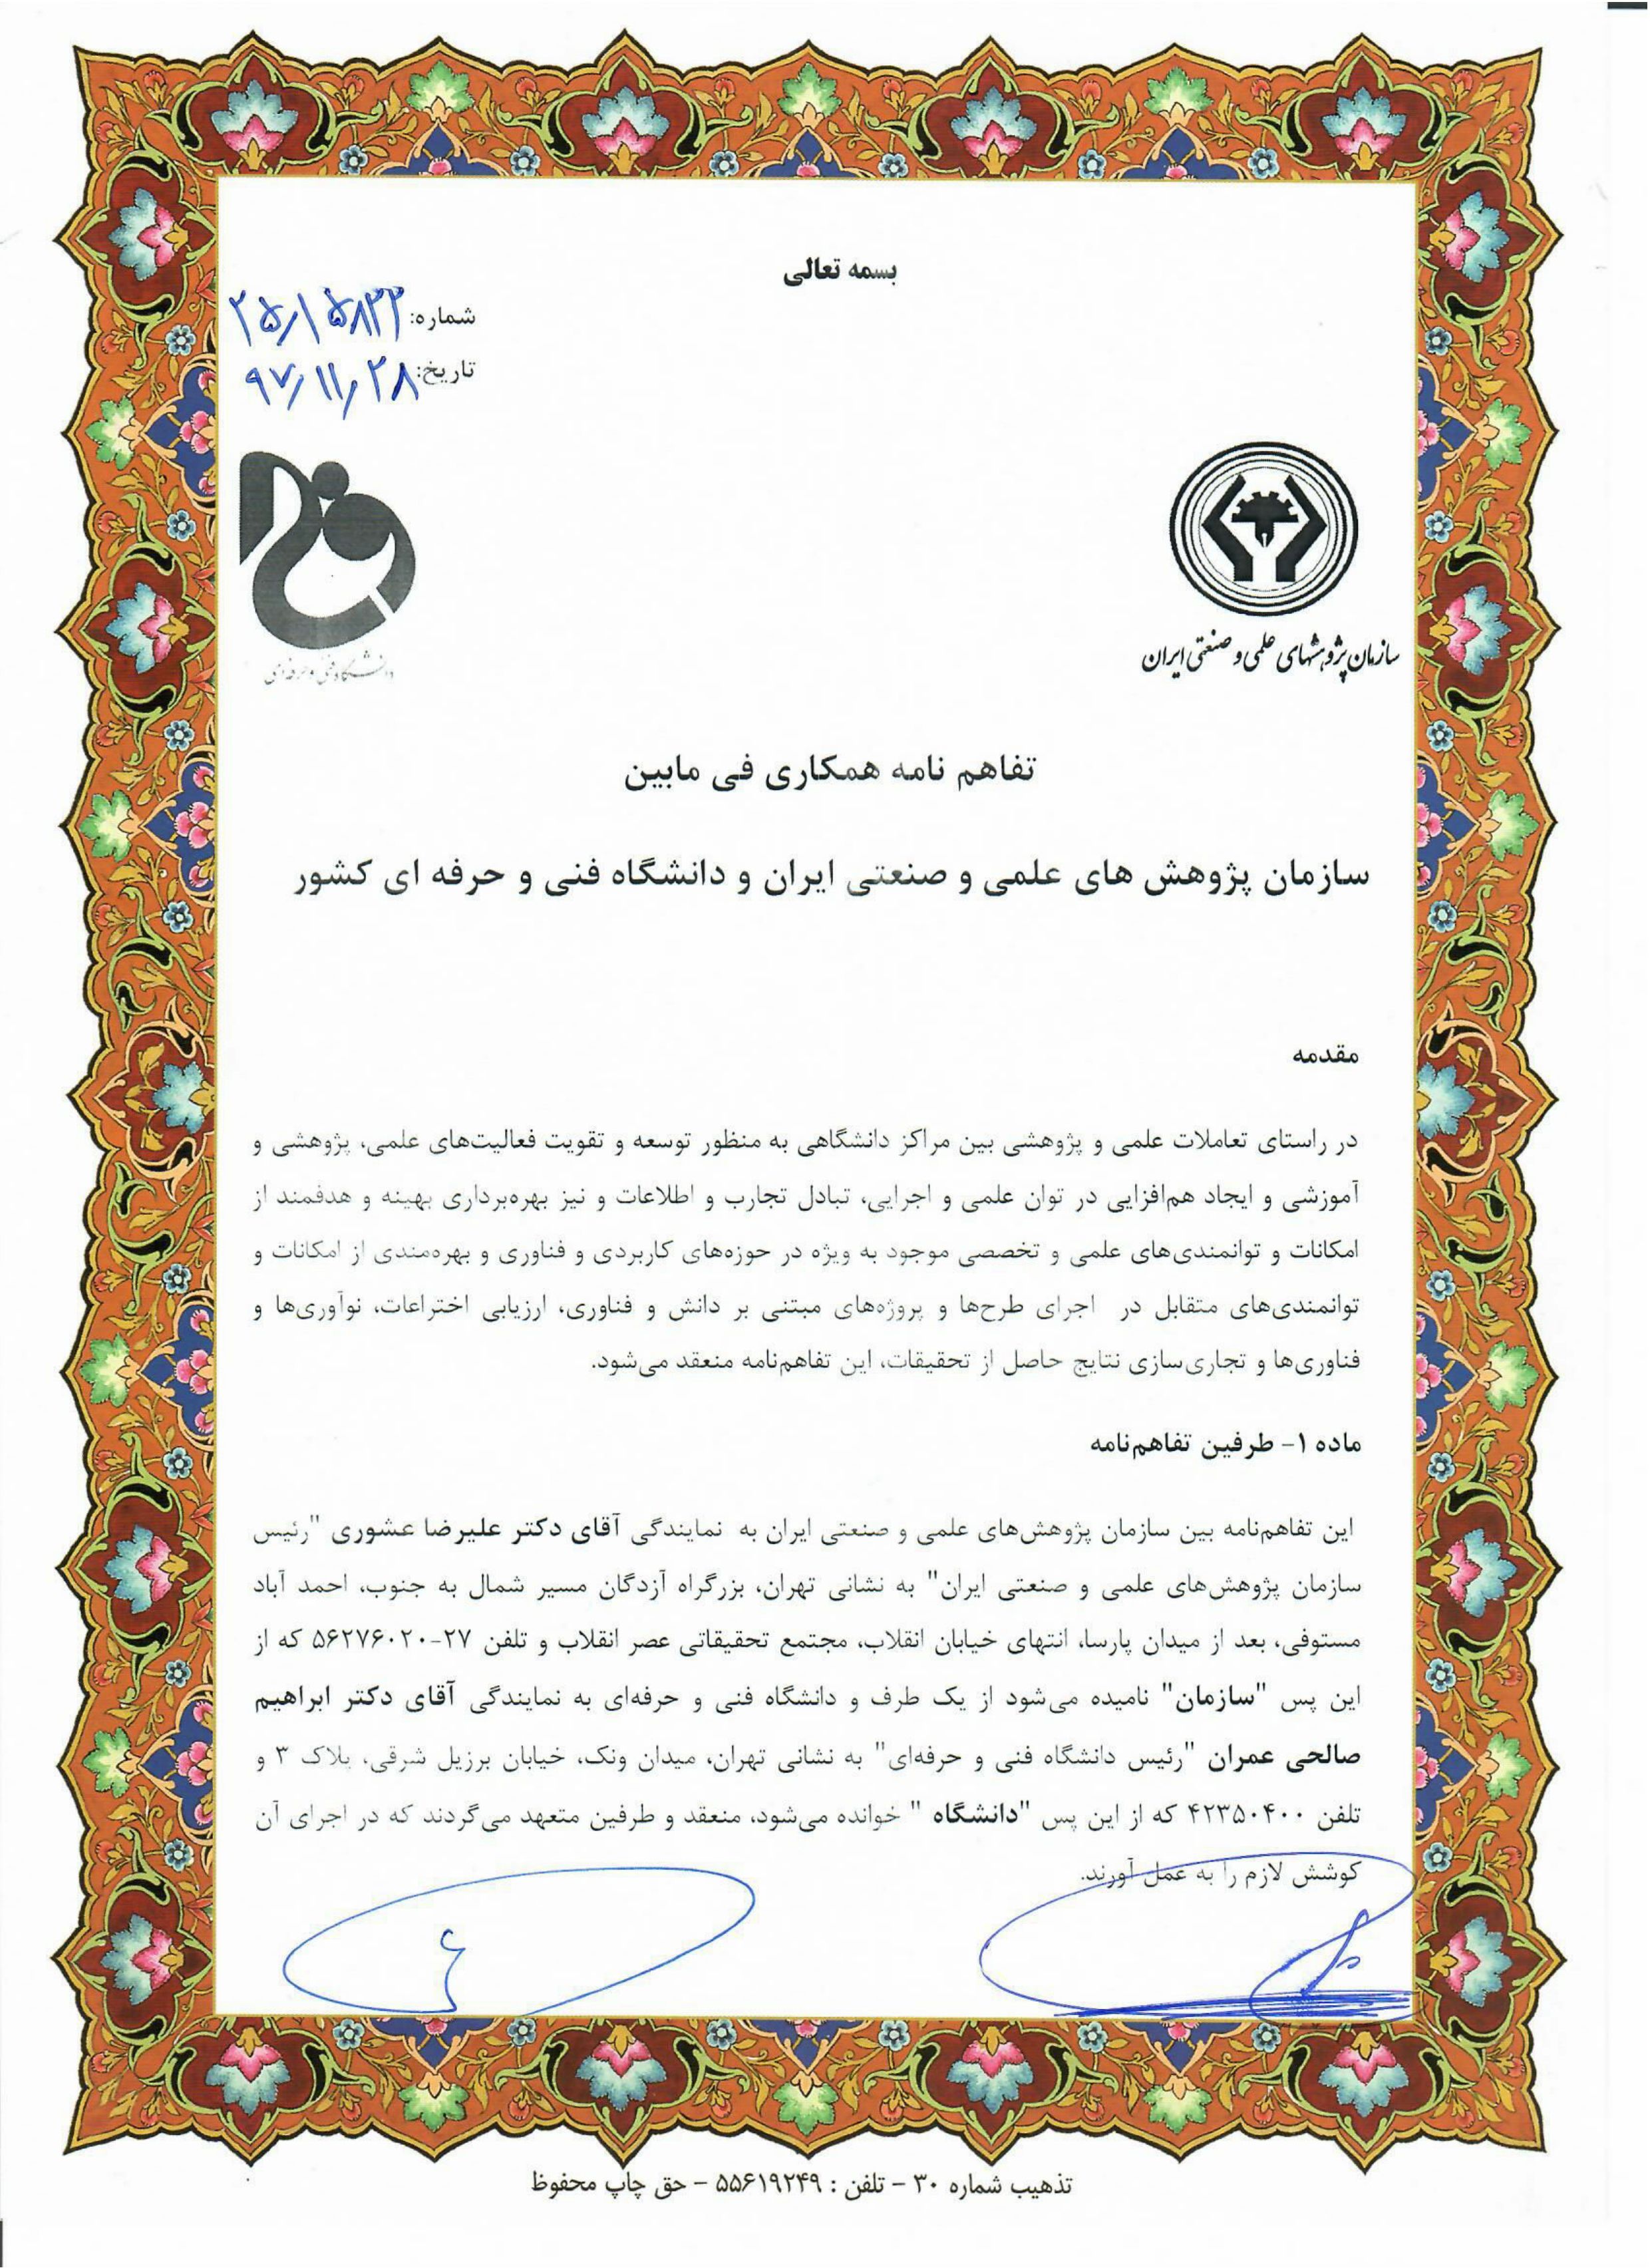 بسمه تعالی
شماره: ۲۵/۱۵۸۲۲
تاریخ: ۹۷/۱۱/۲۸
سازمان پژوهشهای علمی و صنعتی ایران
دانشگاه فنی و حرفه‌ای
تفاهم نامه همکاری فی مابین
سازمان پژوهش های علمی و صنعتی ایران و دانشگاه فنی و حرفه ای کشور
مقدمه
در راستای تعاملات علمی و پژوهشی بین مراکز دانشگاهی به منظور توسعه و تقویت فعالیت‌های علمی، پژوهشی و
آموزشی و ایجاد هم‌افزایی در توان علمی و اجرایی، تبادل تجارب و اطلاعات و نیز بهره‌برداری بهینه و هدفمند از
امکانات و توانمندی‌های علمی و تخصصی موجود به ویژه در حوزه‌های کاربردی و فناوری و بهره‌مندی از امکانات و
توانمندی‌های متقابل در اجرای طرح‌ها و پروژه‌های مبتنی بر دانش و فناوری، ارزیابی اختراعات، نوآوری‌ها و
فناوری‌ها و تجاری‌سازی نتایج حاصل از تحقیقات، این تفاهم‌نامه منعقد می‌شود.
ماده ۱- طرفین تفاهم‌نامه
این تفاهم‌نامه بین سازمان پژوهش‌های علمی و صنعتی ایران به نمایندگی آقای دکتر علیرضا عشوری "رئیس
سازمان پژوهش‌های علمی و صنعتی ایران" به نشانی تهران، بزرگراه آزدگان مسیر شمال به جنوب، احمد آباد
مستوفی، بعد از میدان پارسا، انتهای خیابان انقلاب، مجتمع تحقیقاتی عصر انقلاب و تلفن ۲۷-۵۶۲۷۶۰۲۰ که از
این پس "سازمان" نامیده می‌شود از یک طرف و دانشگاه فنی و حرفه‌ای به نمایندگی آقای دکتر ابراهیم
صالحی عمران "رئیس دانشگاه فنی و حرفه‌ای" به نشانی تهران، میدان ونک، خیابان برزیل شرقی، پلاک ۳ و
تلفن ۴۲۳۵۰۴۰۰ که از این پس "دانشگاه " خوانده می‌شود، منعقد و طرفین متعهد می‌گردند که در اجرای آن
کوشش لازم را به عمل آورند.
تذهیب شماره ۳۰ – تلفن : ۵۵۶۱۹۲۴۹ – حق چاپ محفوظ